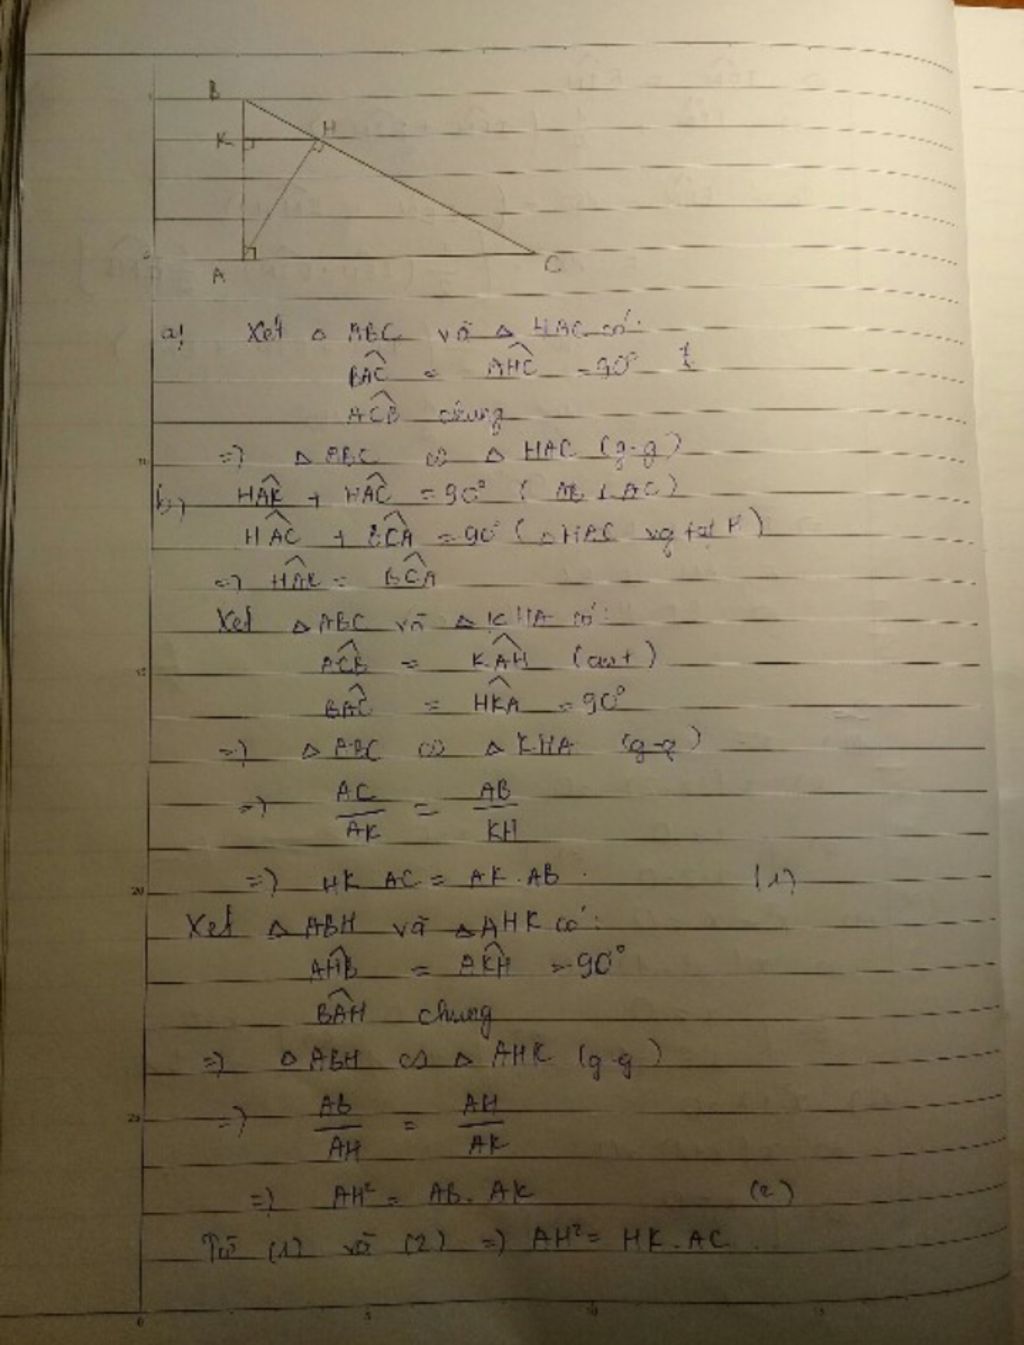 B
K H
A C
a) Xét △ ABC và △ HAC có:
$\widehat{BAC}$ = $\widehat{AHC}$ = 90°
$\widehat{ACB}$ chung
=> △ ABC ∽ △ HAC (g-g)
b) $\widehat{HAK}$ + $\widehat{HAC}$ = 90° ( AB ⊥ AC)
$\widehat{HAC}$ + $\widehat{BCA}$ = 90° ( △ HAC vg tại H )
=> $\widehat{HAK}$ = $\widehat{BCA}$
Xét △ ABC và △ KHA có:
$\widehat{ACB}$ = $\widehat{KAH}$ (cmt)
$\widehat{BAC}$ = $\widehat{HKA}$ = 90°
=> △ ABC ∽ △ KHA (g-g)
=> $\frac{AC}{AK}$ = $\frac{AB}{KH}$
=> HK AC = AK . AB . (1)
Xét △ ABH và △ AHK có:
$\widehat{AHB}$ = $\widehat{AKH}$ = 90°
$\widehat{BAH}$ chung
=> △ ABH ∽ △ AHK (g-g)
=> $\frac{AB}{AH}$ = $\frac{AH}{AK}$
=> AH² = AB . AK (2)
Từ (1) và (2) => AH² = HK . AC .